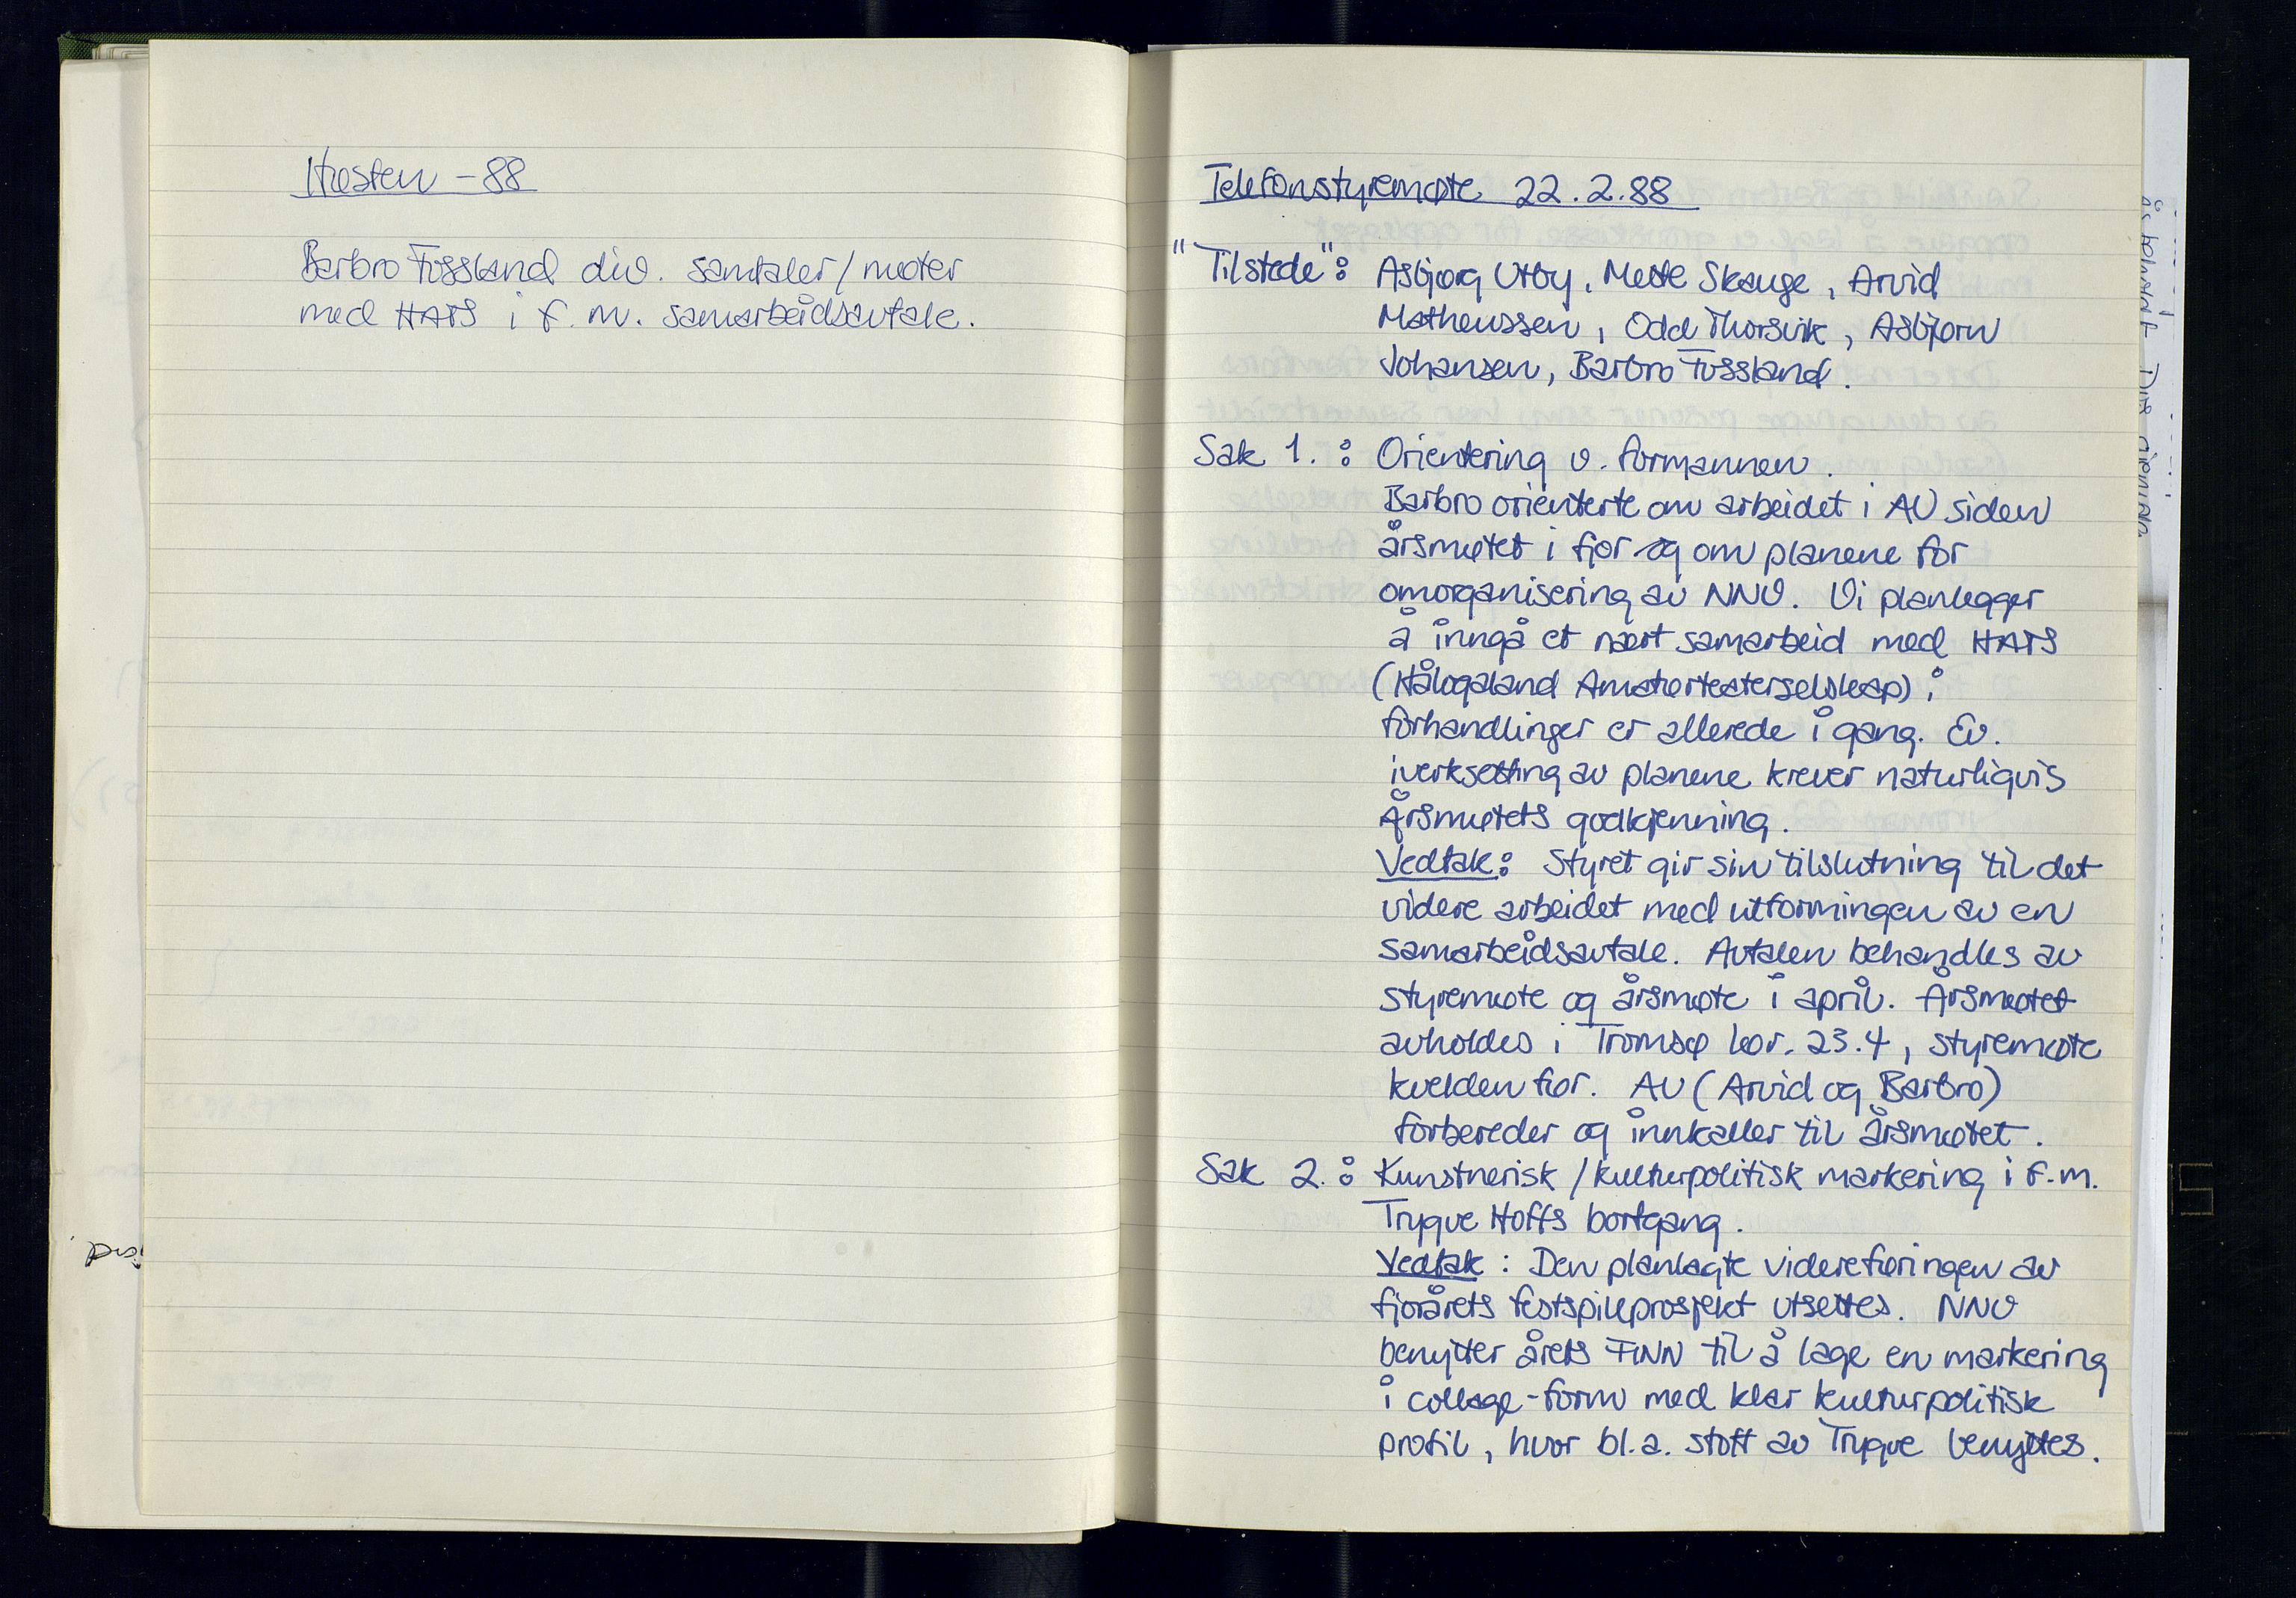 Høsten - 88
Barbro Fossland div. samtaler/møter
med HATS i f.m. samarbeidsavtale.
Telefonstyremøte 22.2.88
"Tilstede": Asbjørg Utby, Mette Skauge, Arvid
Matheussen, Odd Thorsvik, Asbjørn
Johansen, Barbro Fossland.
Sak 1.: Orientering v. formannen.
Barbro orienterte om arbeidet i AU siden
årsmøtet i fjor og om planene for
omorganisering av NNV. Vi planlegger
å inngå et nært samarbeid med HATS
(Hålogaland Amatørteaterselskap) i
forhandlinger er allerede i gang. Ev.
iverksetting av planene krever naturligvis
Årsmøtets godkjenning.
Vedtak: Styret gir sin tilslutning til det
videre arbeidet med utformingen av en
samarbeidsavtale. Avtalen behandles av
styremøte og årsmøte i april. Årsmøtet
avholdes i Tromsø lør. 23.4, styremøte
kvelden før. AU (Arvid og Barbro)
forbereder og innkaller til årsmøtet.
Sak 2.: Kunstnerisk/kulturpolitisk markering i f.m.
Trygve Hoffs bortgang.
Vedtak: Den planlagte videreføringen av
fjorårets festspillprosjekt utsettes. NNV
benytter årets FINN til å lage en markering
i collage-form med klar kulturpolitisk
profil, hvor bl.a. stoff av Trygve benyttes.